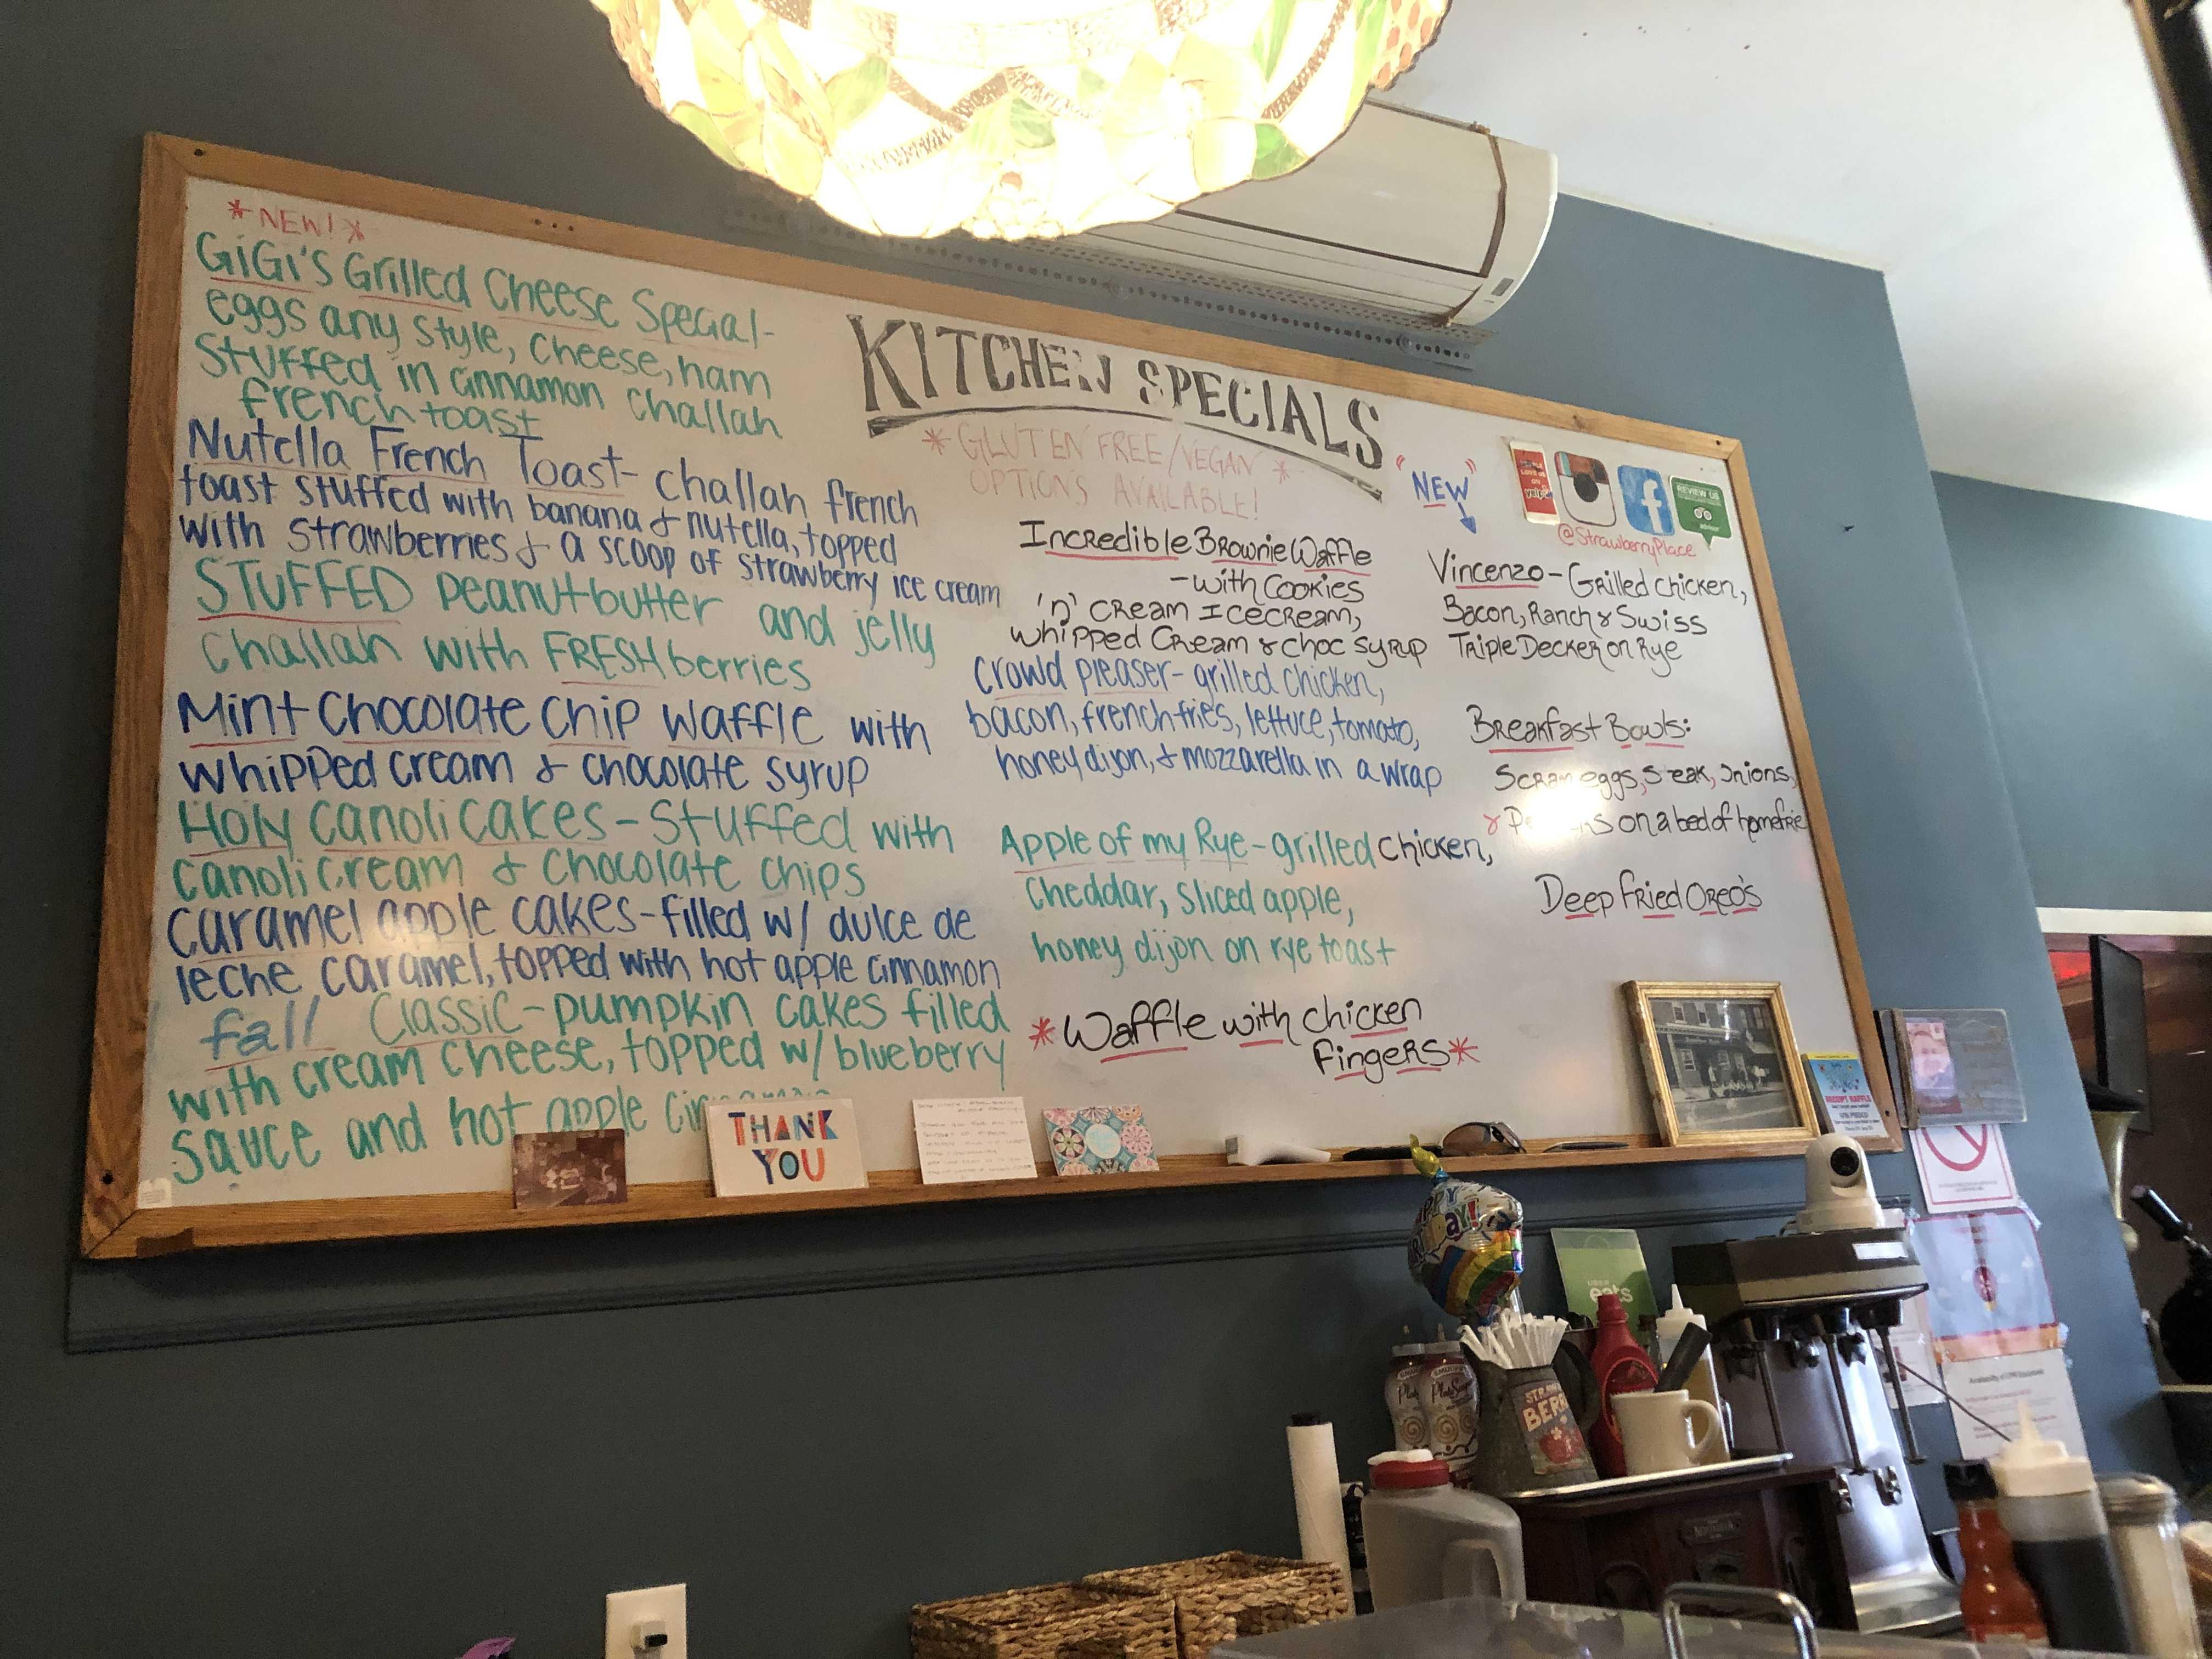 *NEW!*
GiGi's Grilled Cheese Special-
eggs any style, cheese, ham
stuffed in cinnamon challah
french toast
Nutella French Toast- challah french
toast stuffed with banana & nutella, topped
with strawberries & a scoop of strawberry ice cream
STUFFED peanutbutter and jelly
challah with FRESH berries
Mint Chocolate Chip Waffle with
whipped cream & chocolate syrup
Holy Canoli Cakes - Stuffed with
canoli cream & chocolate chips
Caramel apple cakes - filled w/ dulce de
leche caramel, topped with hot apple cinnamon
fall Classic - pumpkin cakes filled
with cream cheese, topped w/ blueberry
sauce and hot apple
KITCHEN SPECIALS
*GLUTEN FREE/VEGAN*
OPTIONS AVAILABLE!
Incredible Brownie Waffle
- with Cookies
'n' Cream Icecream,
whipped Cream & choc syrup
Crowd pleaser- grilled chicken,
bacon, french fries, lettuce, tomato,
honey dijon, & mozzarella in a wrap
Apple of my Rye - grilled chicken,
cheddar, sliced apple,
honey dijon on rye toast
*Waffle with chicken
fingers*
"NEW"
yelp
REVIEW US
@StrawberryPlace
Vincenzo - Grilled chicken,
Bacon, Ranch & Swiss
Triple Decker on Rye
Breakfast Bowls:
eggs, onions,
on a bed of homefrie
Deep Fried Oreo's
THANK
YOU
RECEIPT RAFFLE
UBER
eats
STRAW
BERR